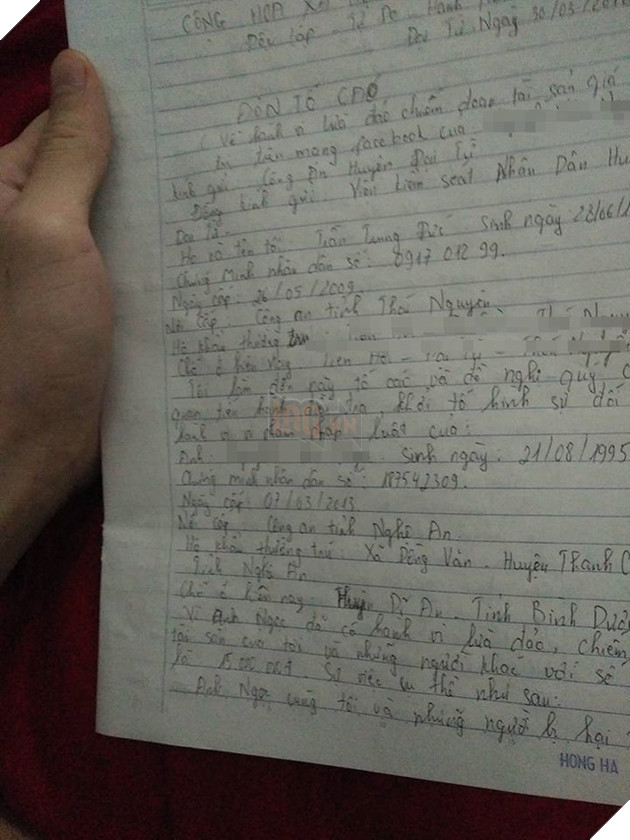 CỘNG HOA XÃ
Độc lập - Tự Do - Hạnh
Đại Từ Ngày 30/03/201
ĐƠN TỐ CÁO
( Về hành vi lừa đảo chiếm đoạt tài sản giá
trị trên mạng facebook của
kính gửi: Công An Huyện Đại Từ
Đồng kính gửi: Viện kiểm soat Nhân Dân Hu
Đại Từ.
Họ và tên tôi: Trần Trung Đức sinh ngày 28/06/1
Chứng Minh nhân dân số: 0917 012 99.
Ngày cấp: 26/05/2009
Nơi cấp: Công an tỉnh Thái Nguyên
Hộ khẩu thường trú
Chỗ ở hiện nay:
Tôi làm đơn này tố cáo và đề nghị quý
quan tiến hành điều tra, khởi tố hình sự đối
hành vi vi phạm pháp luật của:
Anh: Sinh ngày: 21/08/1995
Chứng minh nhân dân số: 187542309.
Ngày cấp: 07/03/2013
Nơi cấp: Công an tỉnh Nghệ An
Hộ khẩu thường trú: Xã Đồng Văn - Huyện Thanh C
Tỉnh Nghệ An
Chỗ ở hiện nay: Huyện Dĩ An - Tỉnh Bình Dươ
Vì Anh Ngọc đã có hành vi lừa đảo, chiếm
tài sản của tôi và những người khác với số
là 15.000.000đ. Sự việc cụ thể như sau:
Anh Ngọc cùng tôi và những người bị hại
HONG HA